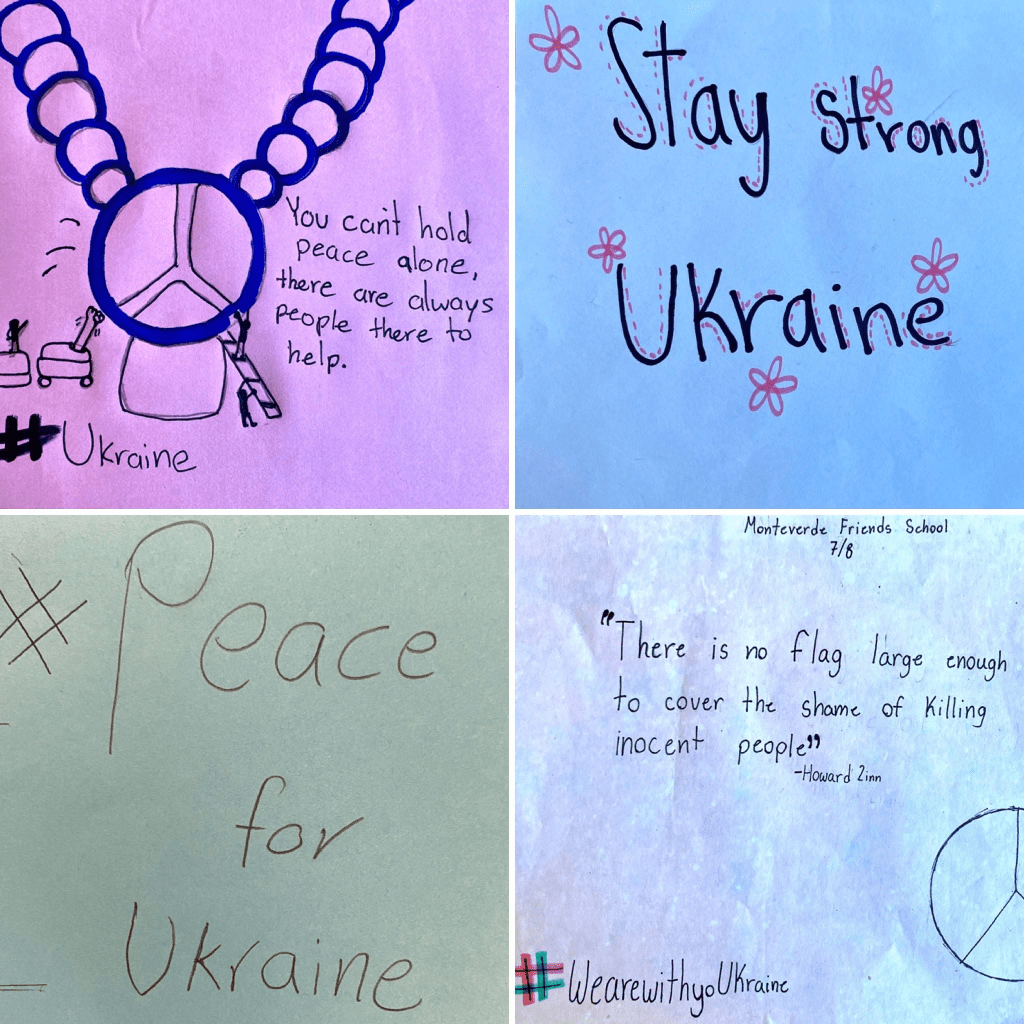 You can't hold
peace alone,
there are always
people there to
help.
#Ukraine
Stay strong
Ukraine
#Peace
for
Ukraine
Monteverde Friends School
7/8
"There is no flag large enough
to cover the shame of killing
inocent people"
-Howard Zinn
#WearewithyoUkraine